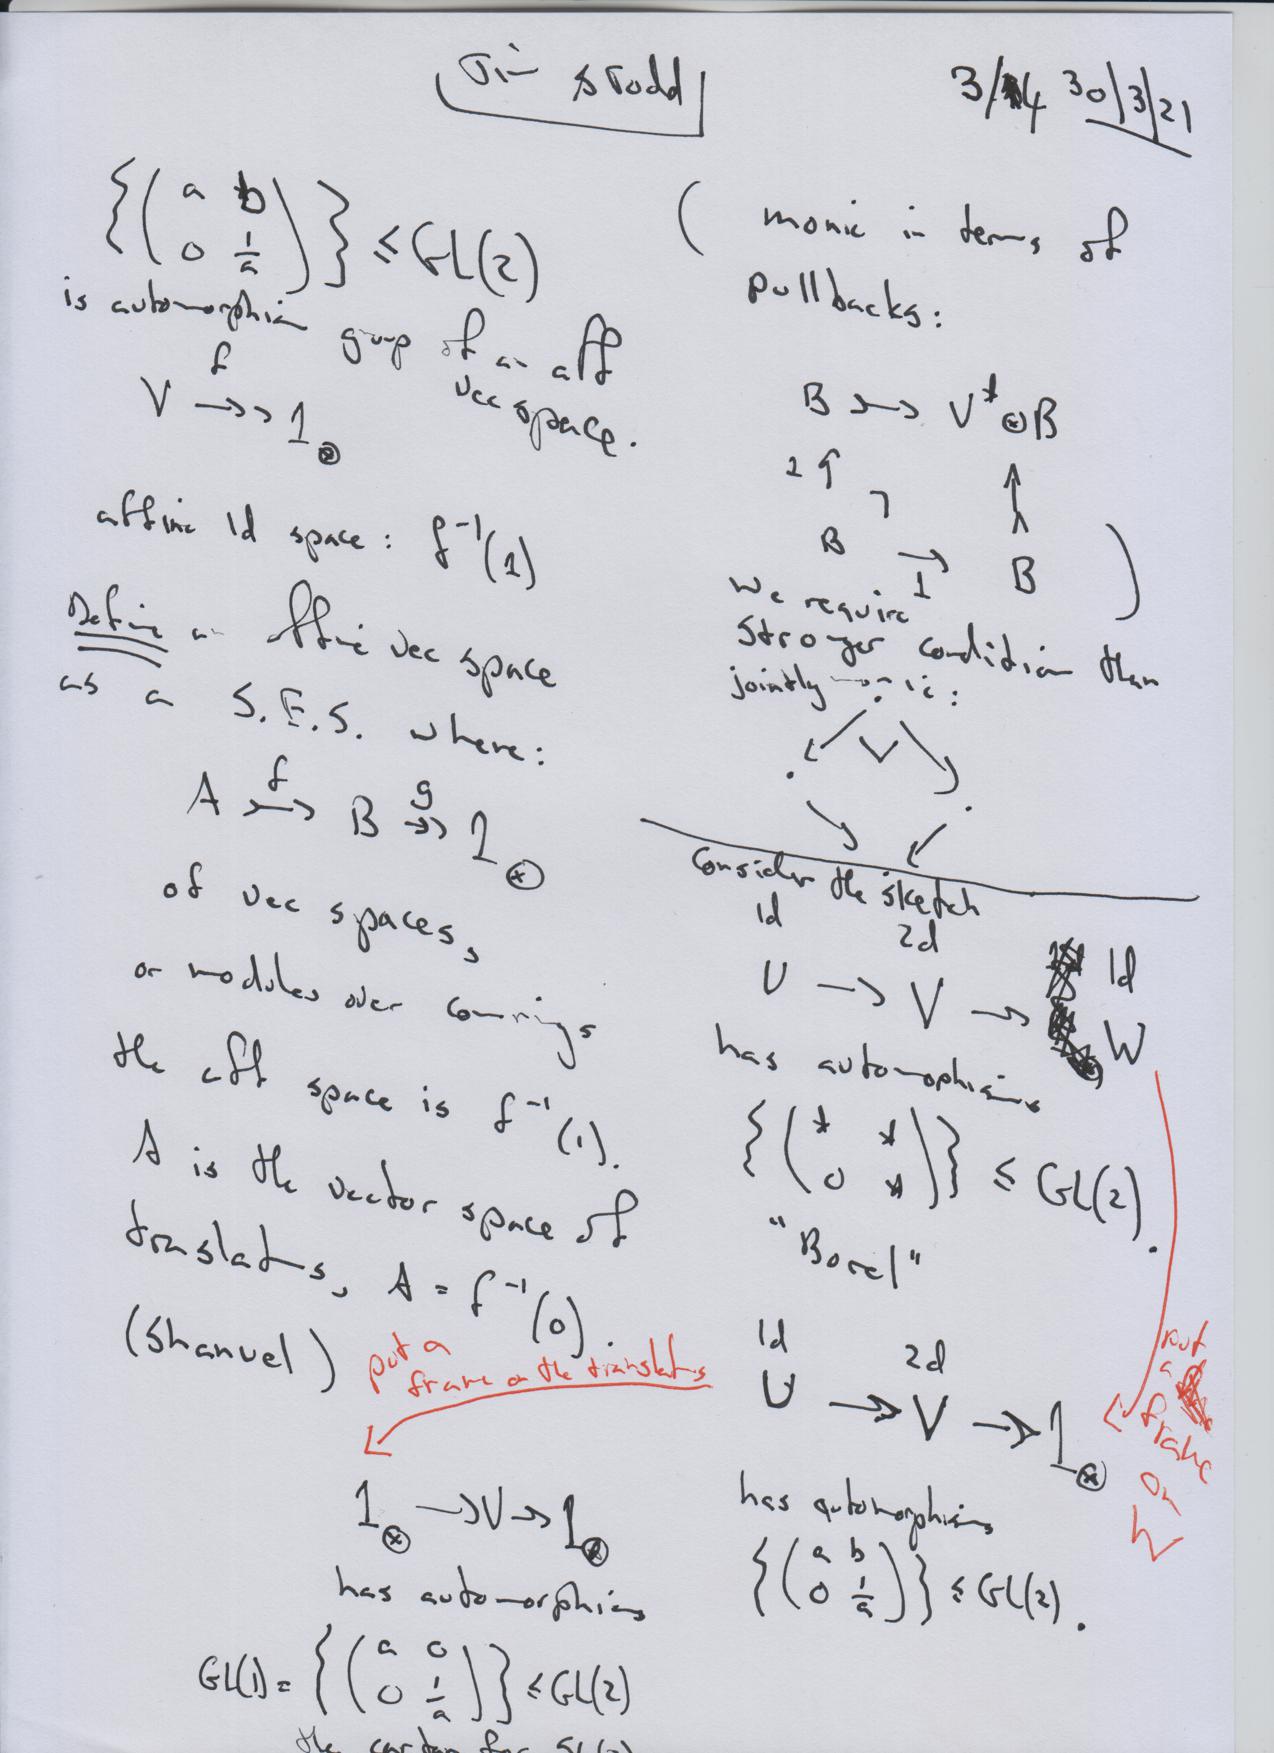 Jim & Todd
3/4 30/3/21
{( a b
0 1/a )} ≤ GL(2)
is automorphism group of an aff
vec space.
V →→ 1⊗
f
affine 1d space: f⁻¹(1)
Define an affine vec space
as a S.E.S. where:
A >→ B →→ 1⊗
f g
of vec spaces,
or modules over comrings
the aff space is f⁻¹(1).
A is the vector space of
translates, A = f⁻¹(0).
(Shanuel)
put a
frame on the translates
1⊗ → V → 1⊗
has automorphisms
GL(1) = {( a 0
0 1/a )} ≤ GL(2)
the cartan for SL(2)
( monic in terms of
pullbacks:
B >→ V* ⊗ B
1 ↑ ↑
B → B )
1
we require
stronger condition than
jointly monic:
Consider the sketch
1d 2d 1d
U → V → W
has automorphisms
{( * *
0 * )} ≤ GL(2).
"Borel"
1d 2d
U → V → 1⊗
put
a
frame
on
W
has automorphisms
{( a b
0 1/a )} ≤ GL(2).